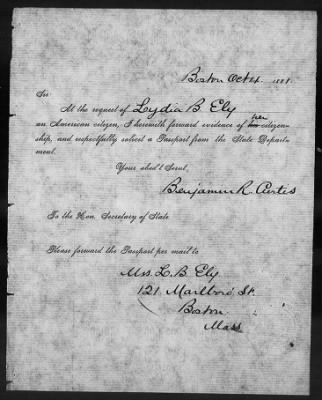 Boston Oct 4. 1881.
Sir
At the request of Lydia B. Ely
an American citizen, I herewith forward evidence of her citizen-
ship, and respectfully solicit a Passport from the State Depart-
ment.
Your obed't Servt,
Benjamin R. Curtis
To the Hon. Secretary of State
Please forward the Passport per mail to
Mrs. L. B. Ely
121 Marlboro' St.
Boston
Mass